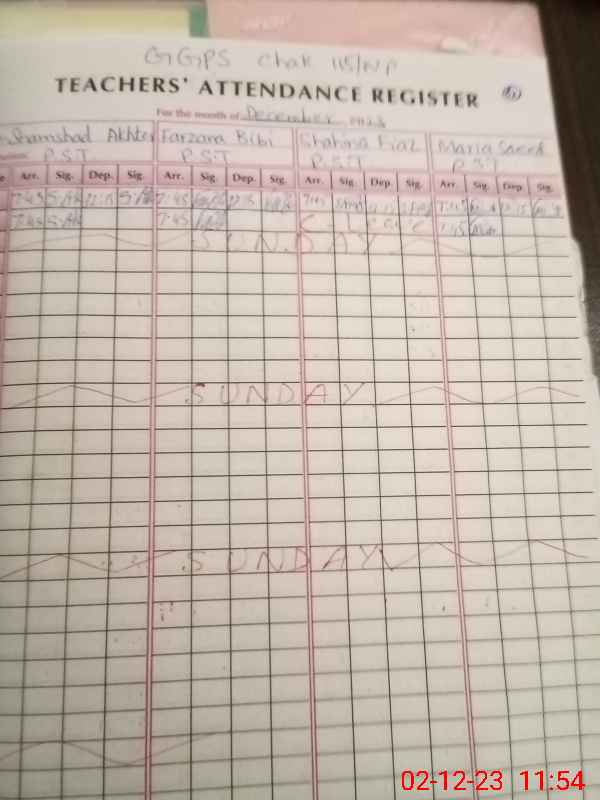 GGPS Chak 115/NP
TEACHERS' ATTENDANCE REGISTER
For the month of December 2023
Shamshad Akhter Farzana Bibi Shahina Fiaz Maria Saeed
P.S.T P.S.T P.S.T P.S.T
Arr. Sig. Dep. Sig. Arr. Sig. Dep. Sig. Arr. Sig. Dep. Sig. Arr. Sig. Dep. Sig.
7:45 7:45 7:45
7:45 7:45 Leave 7:45
SUNDAY
SUNDAY
SUNDAY
02-12-23 11:54